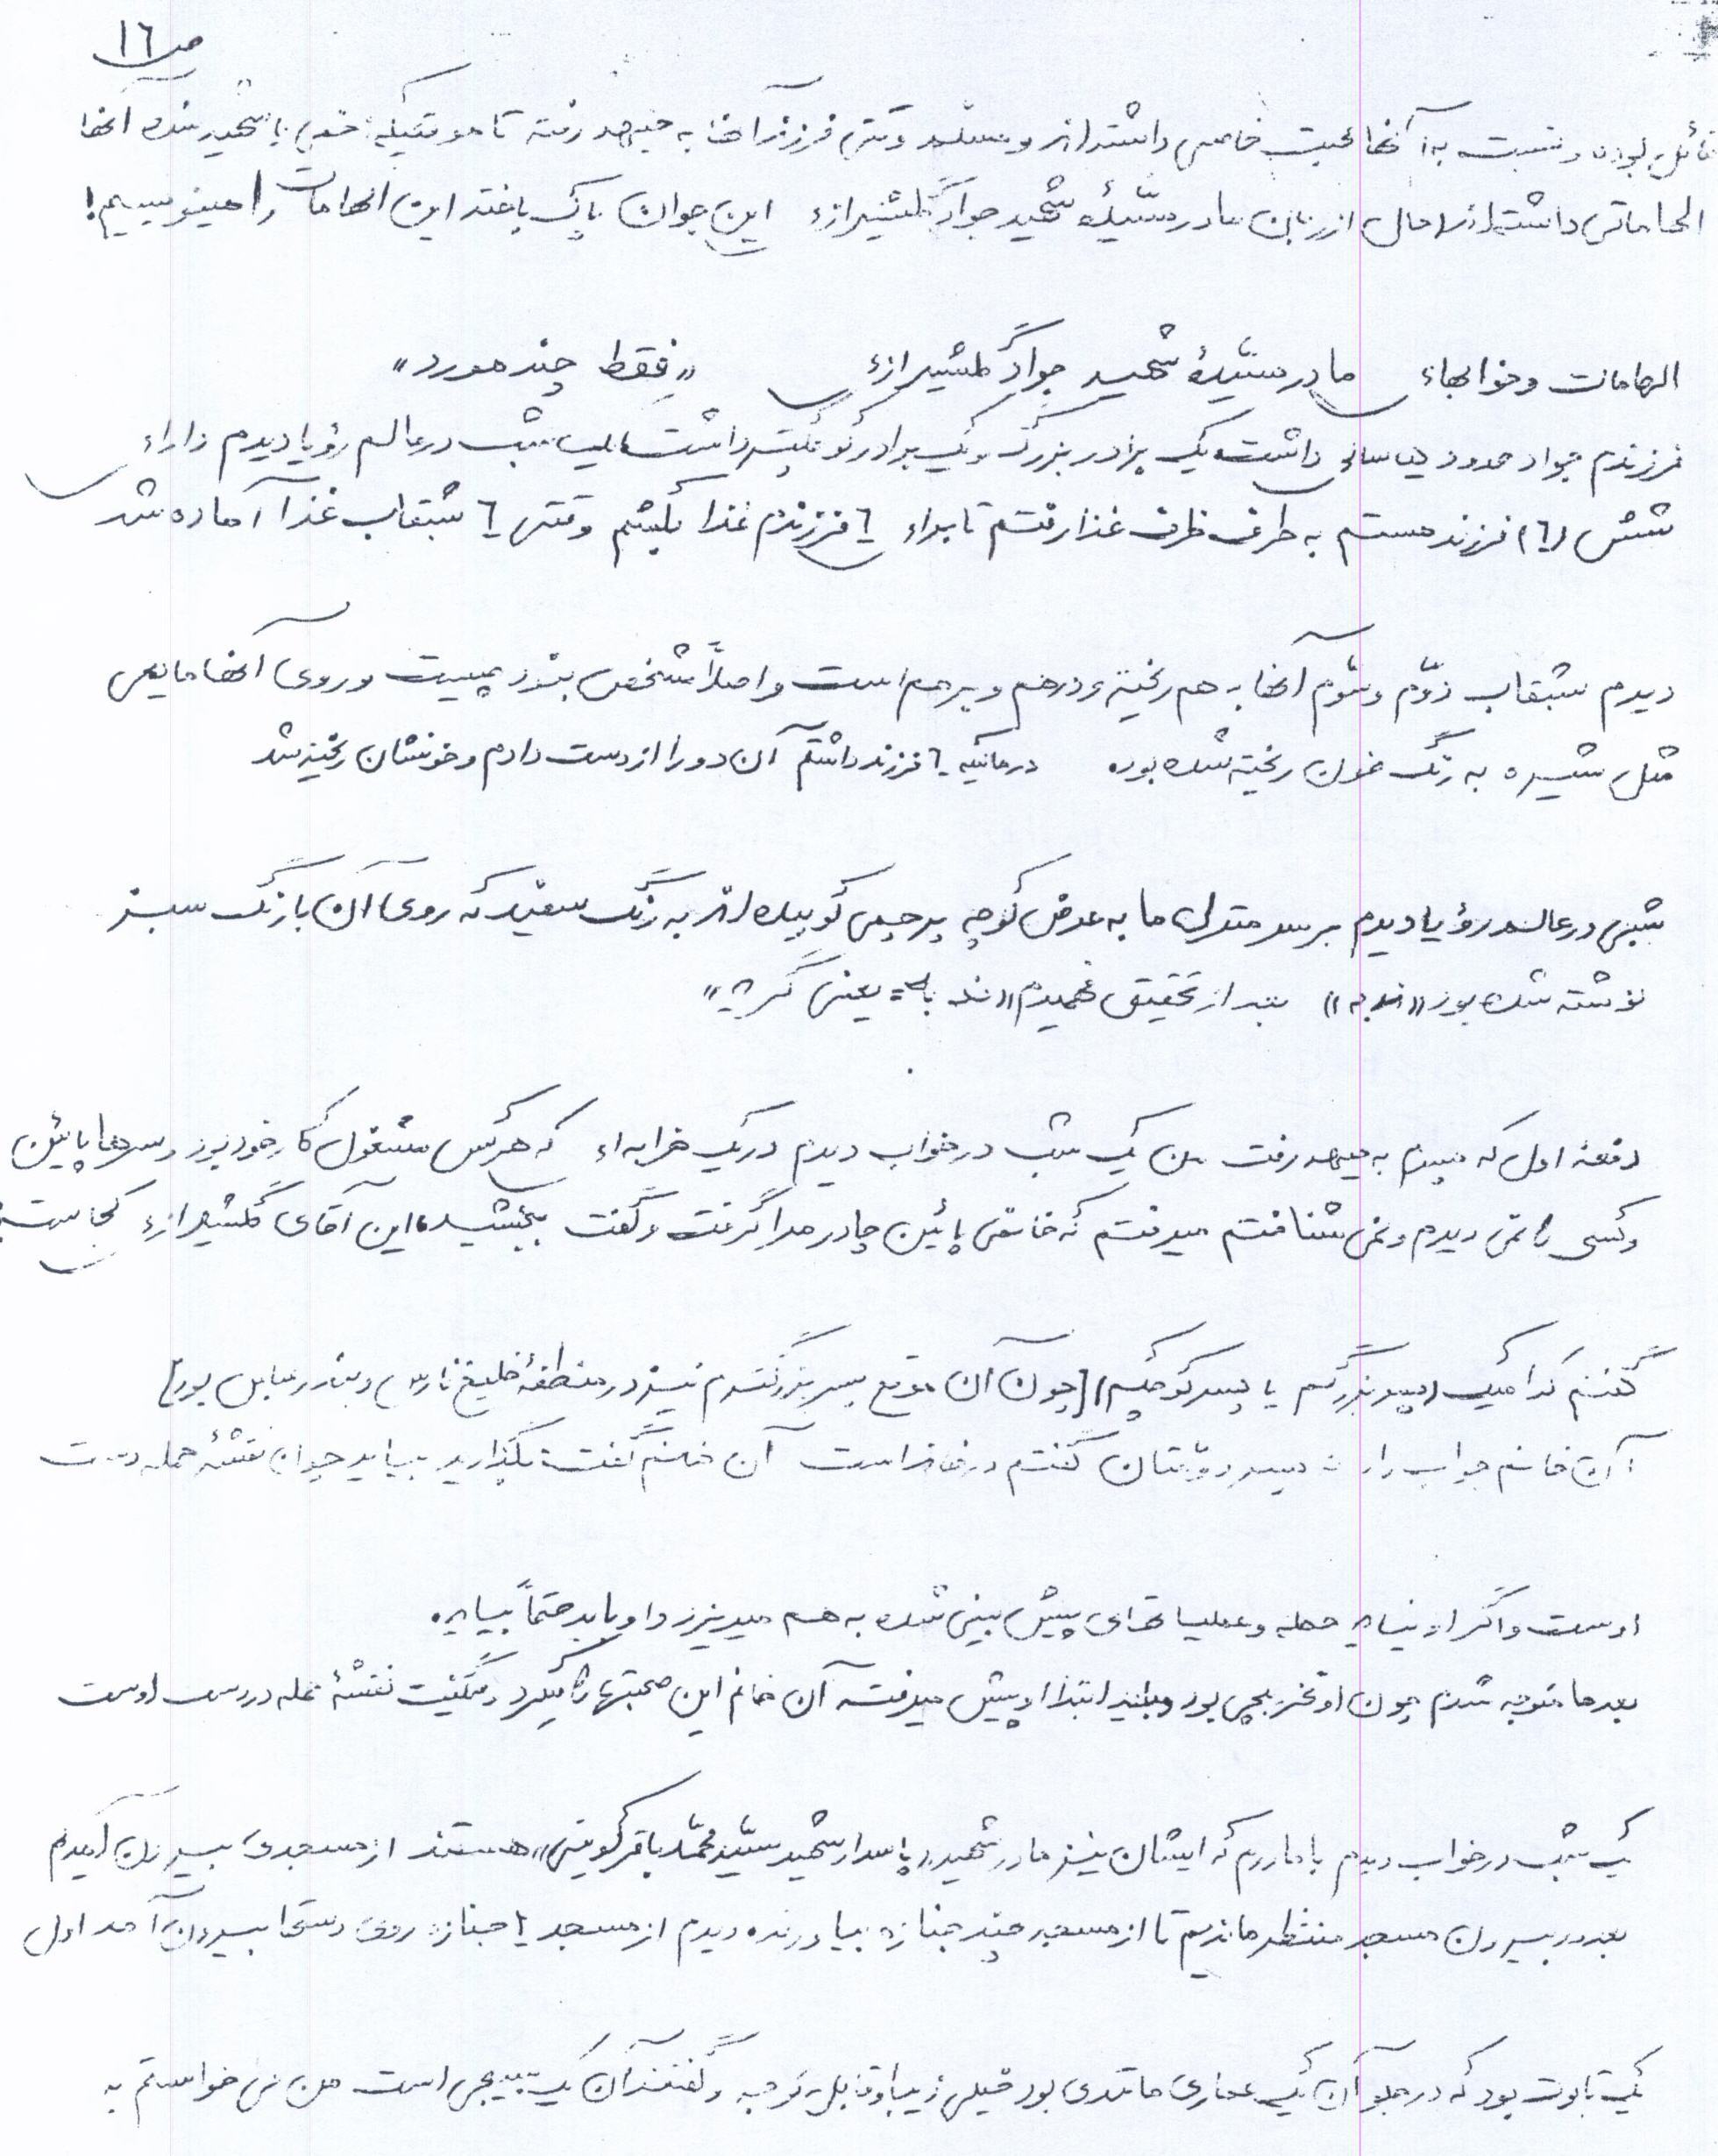 ص ١٦
قائل بودن و نسبت به آنها محبت خاصی داشته‌اند و مسلم وقتی فرزند آنها به جبهه رفته تا موقعیکه خدای با شهید شده آنها
الهاماتی داشته‌اند حال از زبان مادر سیّدهٔ شهید جواد گلشیرازی این جوان پاک باخته این الهامات را مینویسیم!
الهامات وخوابهای مادر سیّدهٔ شهید جواد گلشیرازی «فقط چند مورد»
فرزندم جواد حدود سالی داشت یک برادر بزرگ و یک برادر کوچکتر داشت یک شب در عالم رؤیا دیدم دارای
شش (٦) فرزند هستم به طرف ظرف غذا رفتم تا برای ٦ فرزندم غذا بکشم وقتی ٦ بشقاب غذا آماده شد
دیدم بشقاب دوّم و سّوم آنها به هم ریخته و درهم و برهم است و اصلاً مشخص نبود چیست و روی آنها مایعی
مثل شیره به رنگ خون ریخته شده بود در حالیکه ٦ فرزند داشتم آن دو را از دست دادم و خونشان ریخته شد
شبی در عالم رؤیا دیدم بر سر منزل ما به عرض کوچه پرچمی کوبیده‌اند به رنگ سفید که روی آن با رنگ سبز
نوشته شده بود «ندبه» بعد از تحقیق فهمیدم «ندبه = یعنی گریه»
دفعه اول که پسرم به جبهه رفت من یک شب در خواب دیدم در یک خرابه‌ای که هرکس مشغول کار خود بود و سرها پائین
و کسی را نمی دیدم و نمی شناختم میرفتم که خانمی پائین چادر مرا گرفت و گفت ببخشید، این آقای گلشیرازی کجاست
گفتم کدامیک (پسر بزرگم یا پسر کوچکم) [چون آن موقع پسر بزرگترم نیز در منطقهٔ خلیج فارس و بنادر ساحل بود]
آن خانم جواب داد پسر دوّمتان گفتم در خانه است آن خانم گفت بگذارید بیاید چون نقشهٔ حمله دست
اوست و اگر او نیاید حمله و عملیاتهای پیش بینی شده به هم میریزد و او باید حتماً بیاید
بعدها متوجه شدم چون او تخریبچی بود و باید ابتدا او پیش میرفت آن خانم این صحبتها را میکرد و میگفت نقشهٔ حمله در دست اوست
یک شب در خواب دیدم با مادرم که ایشان نیز مادر شهید «پاسدار شهید سیّد محمّد باقر گویتی» هستند از مسجدی بیرون آمدم
بعد در بیرون مسجد منتظر ماندیم تا از مسجد چند جنازه بیاورند، دیدم از مسجد ٦ جنازه روی دستها بیرون آمد اول
یک تابوت بود که در جلو آن یک عماری مانندی بود خیلی زیبا و قابل توجه و گفتند آن یک بسیجی است من می خواستم به